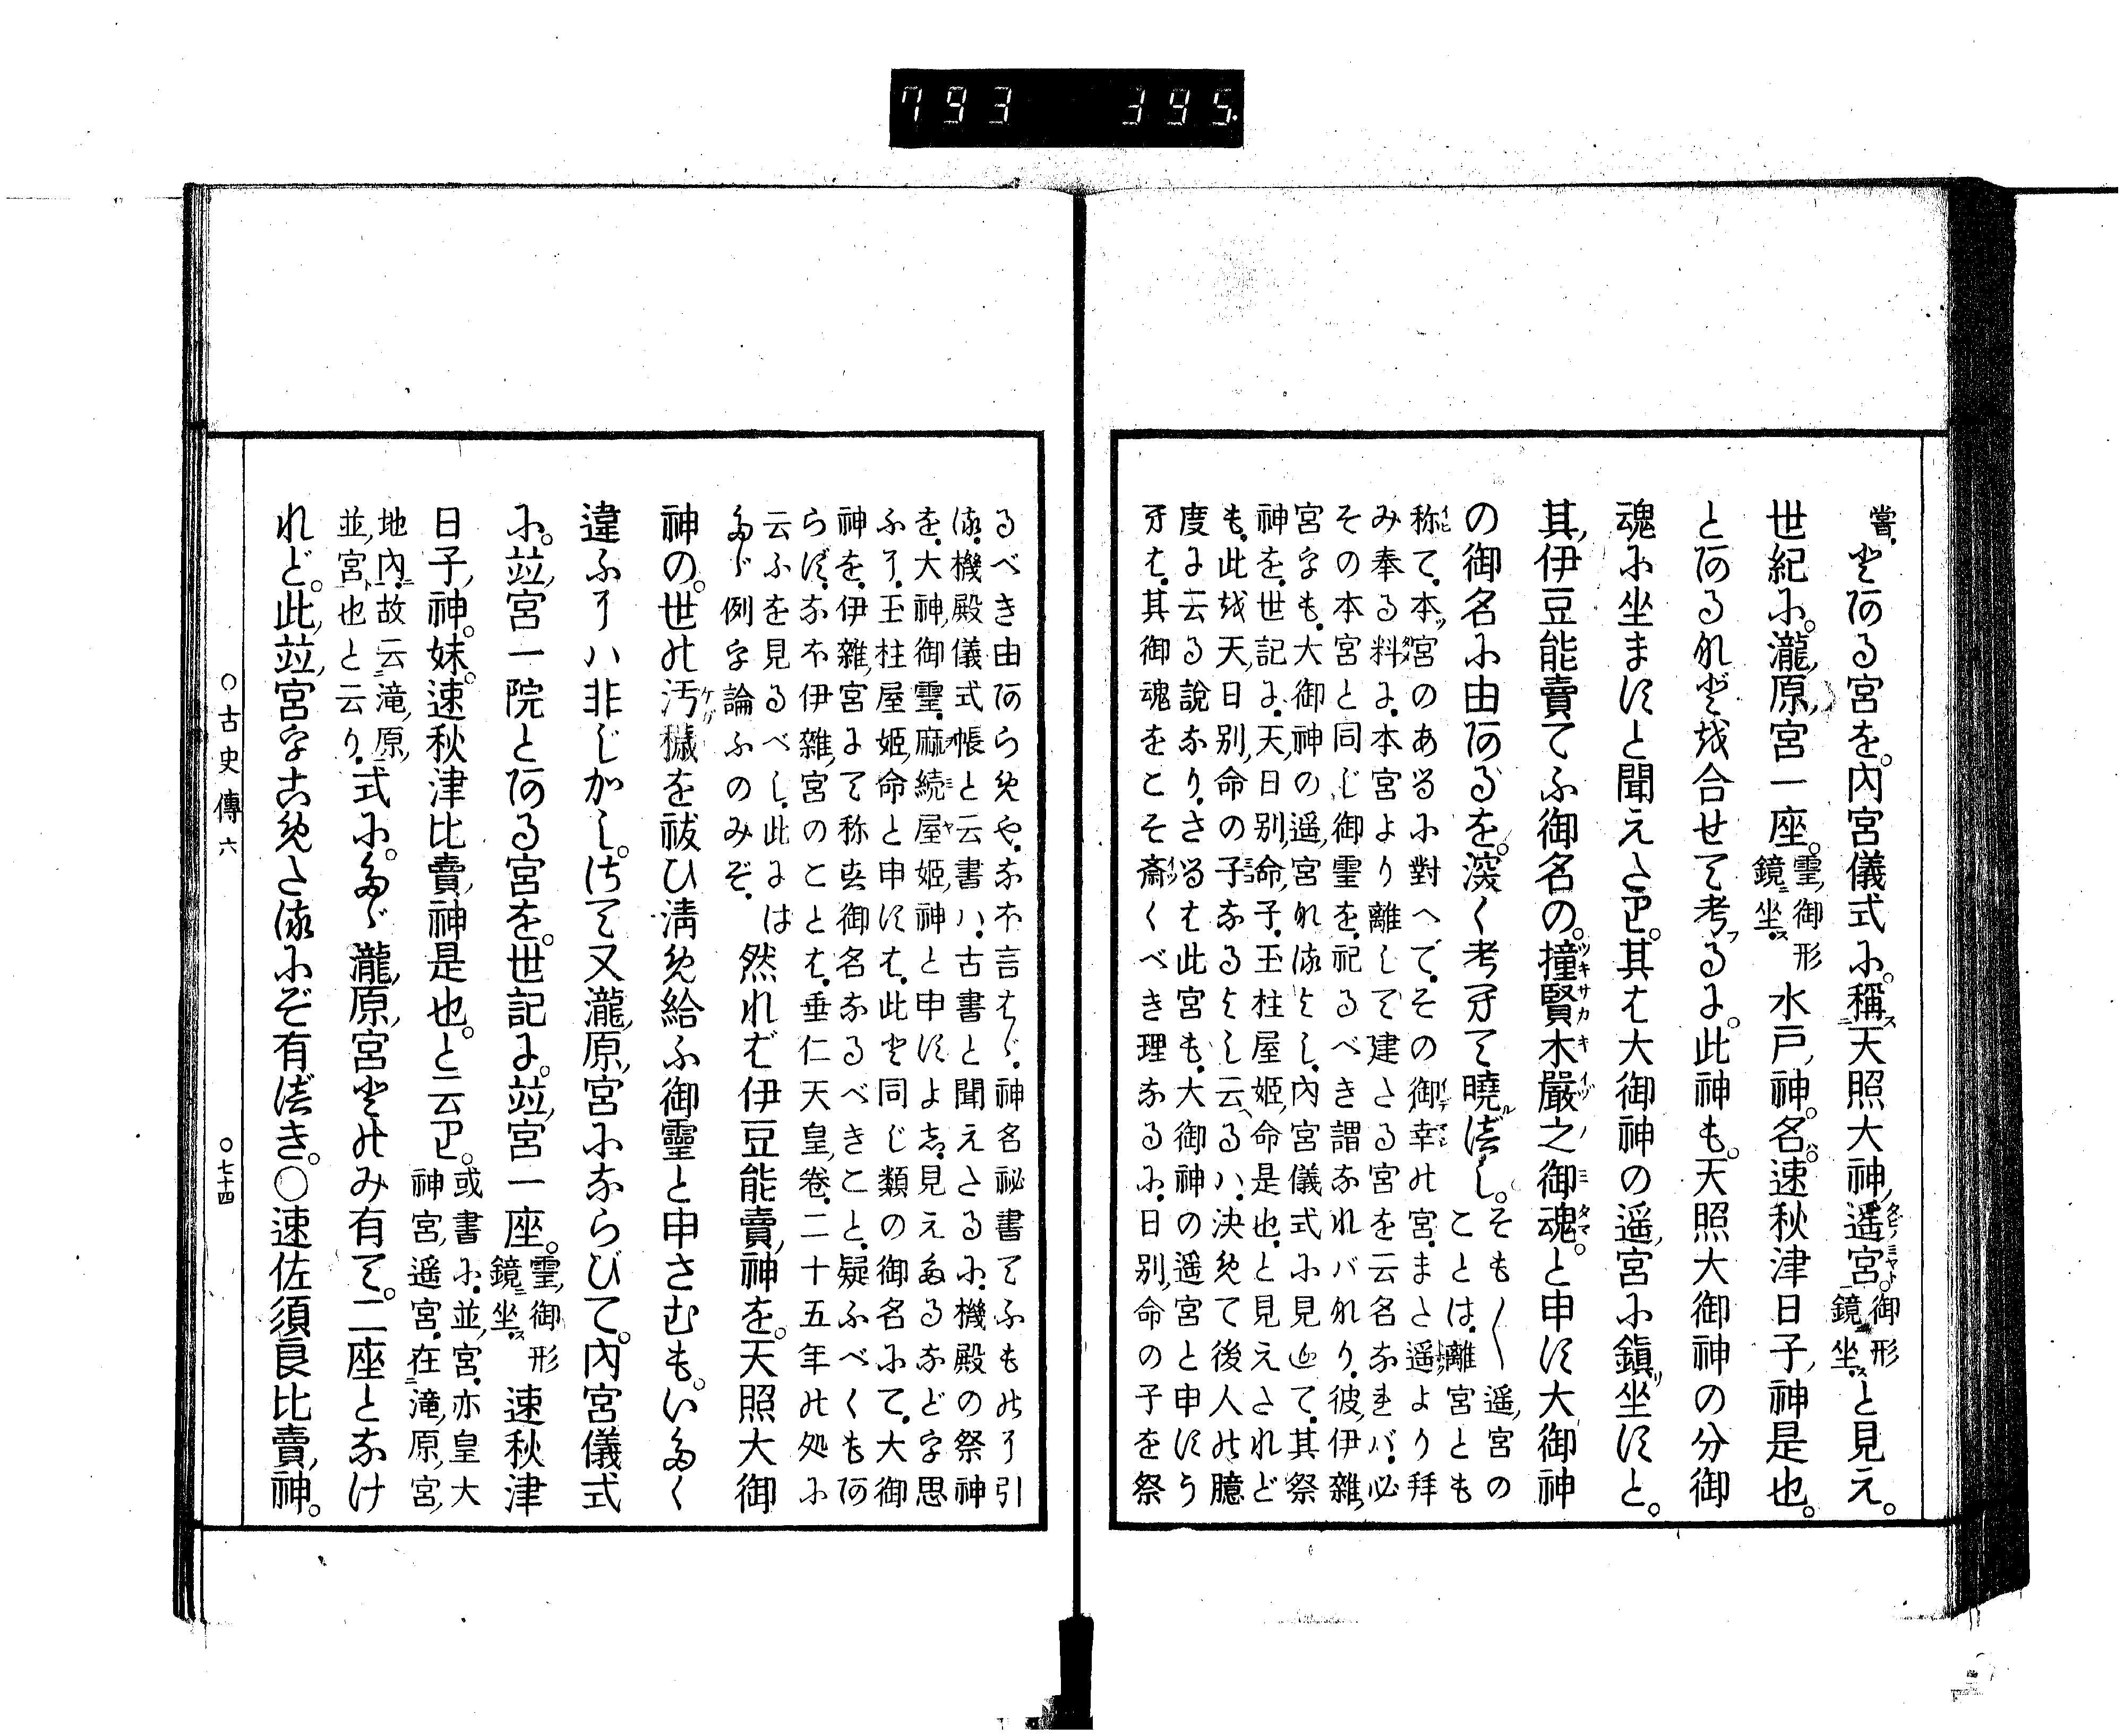 793 395.
嘗。とある宮を。内宮儀式に。稱天照大神遥宮。御形鏡坐。と見え。
世紀に。瀧原宮一座。靈御形鏡坐。水戸神。名速秋津日子神是也。
とあるれど以合せて考るに。此神も。天照大御神の分御
魂に坐ますと聞えたり。其は大御神の遥宮に鎮坐すと。
其伊豆能賣てふ御名の。撞賢木嚴之御魂。と申す大御神
の御名に由あるを。深く考へて曉べし。そも〳〵遥宮のことは。離宮とも
称て。本宮のあるに對へて。その御幸の宮。また遥より拜
み奉る料に。本宮より離して建たる宮を云名なれバ。必
その本宮と同じ御霊を。祀るべき謂なれバなり。彼伊雜
宮をも。大御神の遥宮なるよし。内宮儀式に見出て。其祭
神を。世記に。天日別命子。玉柱屋姫命是也。と見えたれど
も。此は天日別命の子なるよし云るハ。決めて後人の臆
度に云る説なり。さるは此宮も。大御神の遥宮と申すう
へは。其御魂をこそ斎くべき理なるに。日別命の子を祭
るべき由あらめや。なほ言はゞ。神名秘書てふものに引
る。機殿儀式帳と云書ハ。古書と聞えたるに。機殿の祭神
を。大神御霊。麻続屋姫神と申すよし。見えたるなどを思
ふに。玉柱屋姫命と申すは。此と同じ類の御名にて。大御
神を。伊雜宮にて称す御名なるべきこと。疑ふべくもあ
らず。なほ伊雜宮のことは。垂仁天皇卷。二十五年の処に
云ふを見るべし。此には
たゞ例を論ふのみぞ。然れば伊豆能賣神を。天照大御
神の。世の汚穢を祓ひ清め給ふ御靈と申さむも。いたく
違ふにハ非じかし。さて又瀧原宮にならびて。内宮儀式
に。竝宮一院とある宮を。世記に。竝宮一座。靈御形鏡坐。速秋津
日子神。妹速秋津比賣神是也。と云り。或書に。並宮。亦皇大神宮遥宮。在滝原宮
地内。故云滝原並宮也と云り。式に。たゞ瀧原宮とのみ有て。二座となけ
れど。此竝宮をこめたるにぞ有べき。○速佐須良比賣神。
○古史傳六 ○七十四